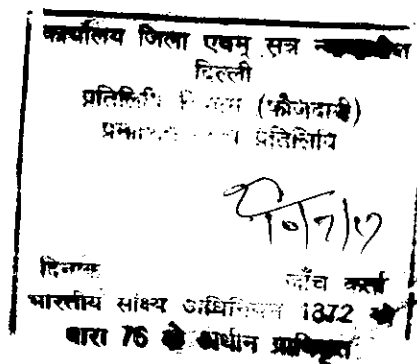 कार्यालय जिला एवम् सत्र
दिल्ली
प्रतिलिपि (फौजदारी)
प्रतिलिपि
10/7/17
दिनांक जाँच कर्ता
भारतीय साक्ष्य अधिनियम 1872 की
धारा 76 के अधीन प्राधिकृत